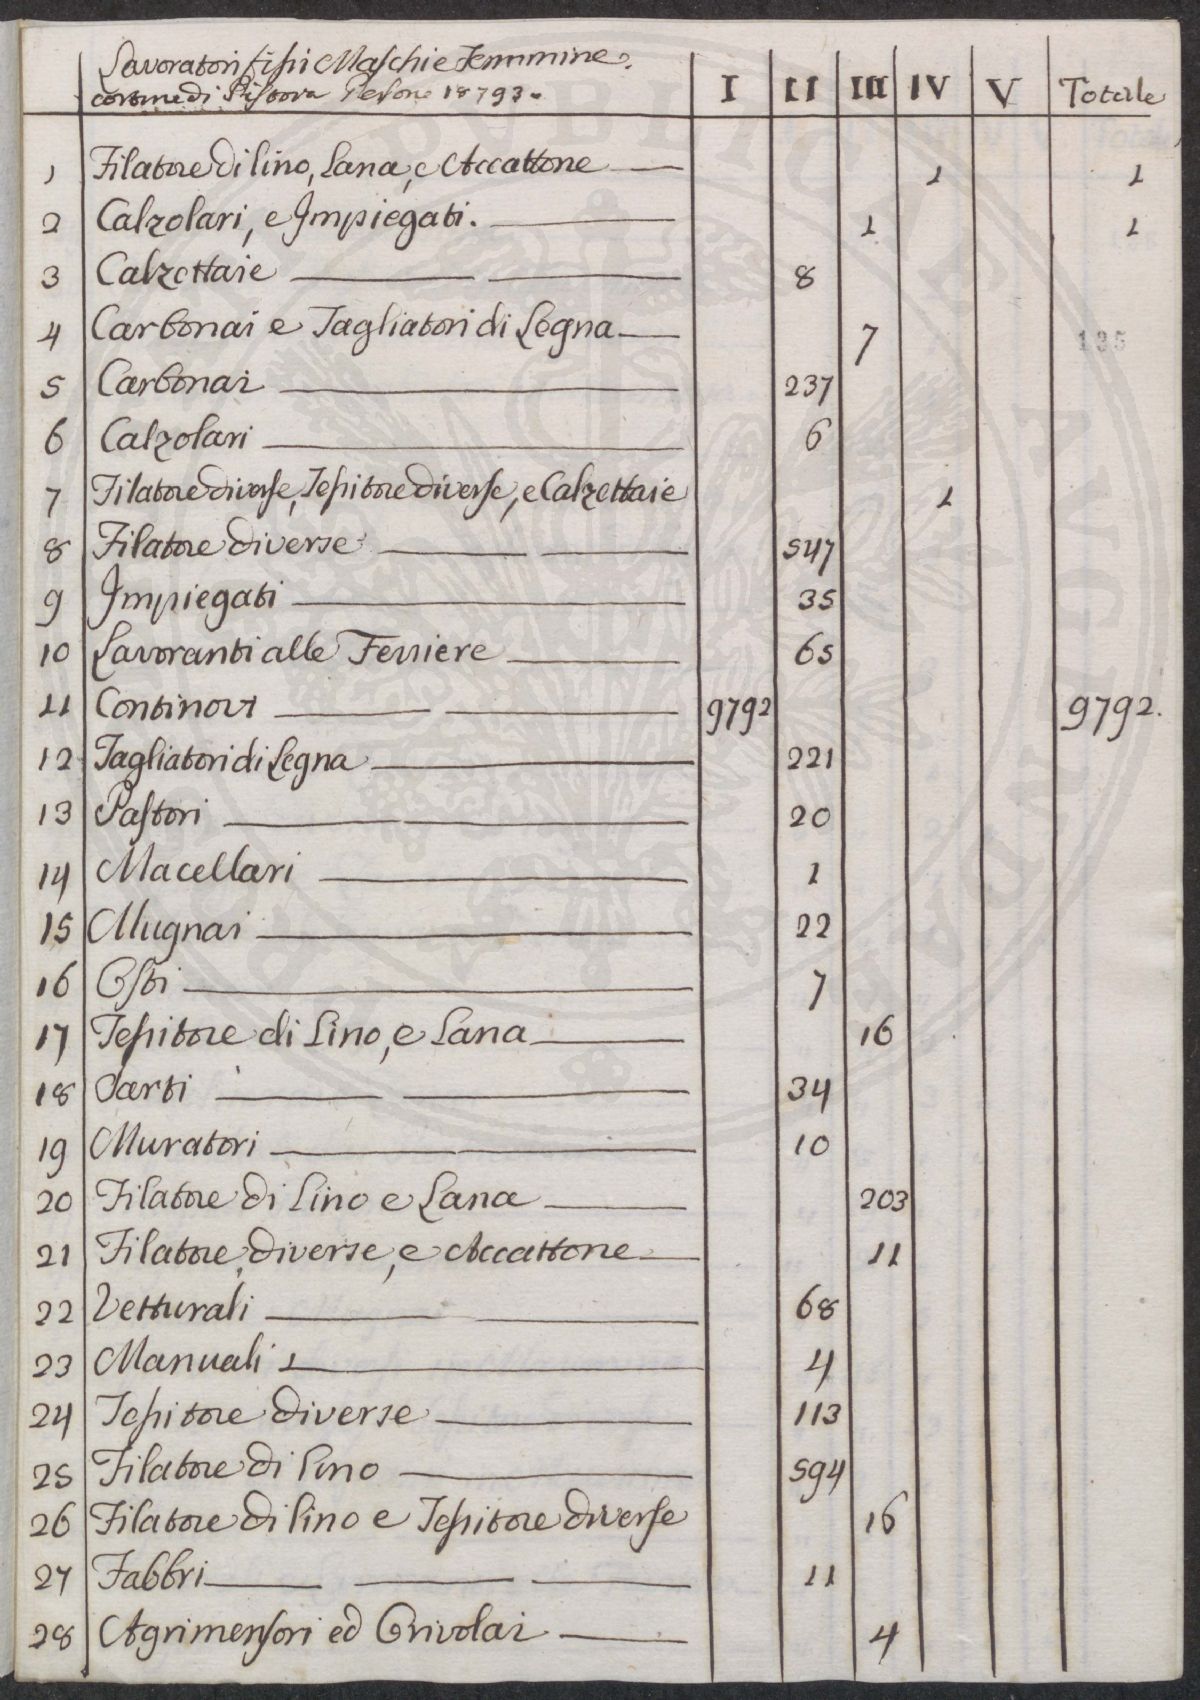 Lavoratori fissi Maschi e Femmine.
cortine di Pistoia Persone 18793. I II III IV V Totale
1 Filatore di lino, Lana, e Accattone 1 1
2 Calzolari, e Impiegati. 1 1
3 Calzettaie 8
4 Carbonai e Tagliatori di Legna 7
135
5 Carbonai 237
6 Calzolari 6
7 Filatore diverse, Tessitore diverse, e Calzettaie 1
8 Filatore diverse 547
9 Impiegati 35
10 Lavoranti alle Ferriere 65
11 Continovi 9792 9792.
12 Tagliatori di Legna 221
13 Pastori 20
14 Macellari 1
15 Mugnai 22
16 Osti 7
17 Tessitore di Lino, e Lana 16
18 Sarti 34
19 Muratori 10
20 Filatore di Lino e Lana 203
21 Filatore, diverse, e Accattone 11
22 Vetturali 68
23 Manuali 4
24 Tessitore diverse 113
25 Filatore di lino 594
26 Filatore di lino e Tessitore diverse 16
27 Fabbri 11
28 Agrimensori ed Orivolai 4